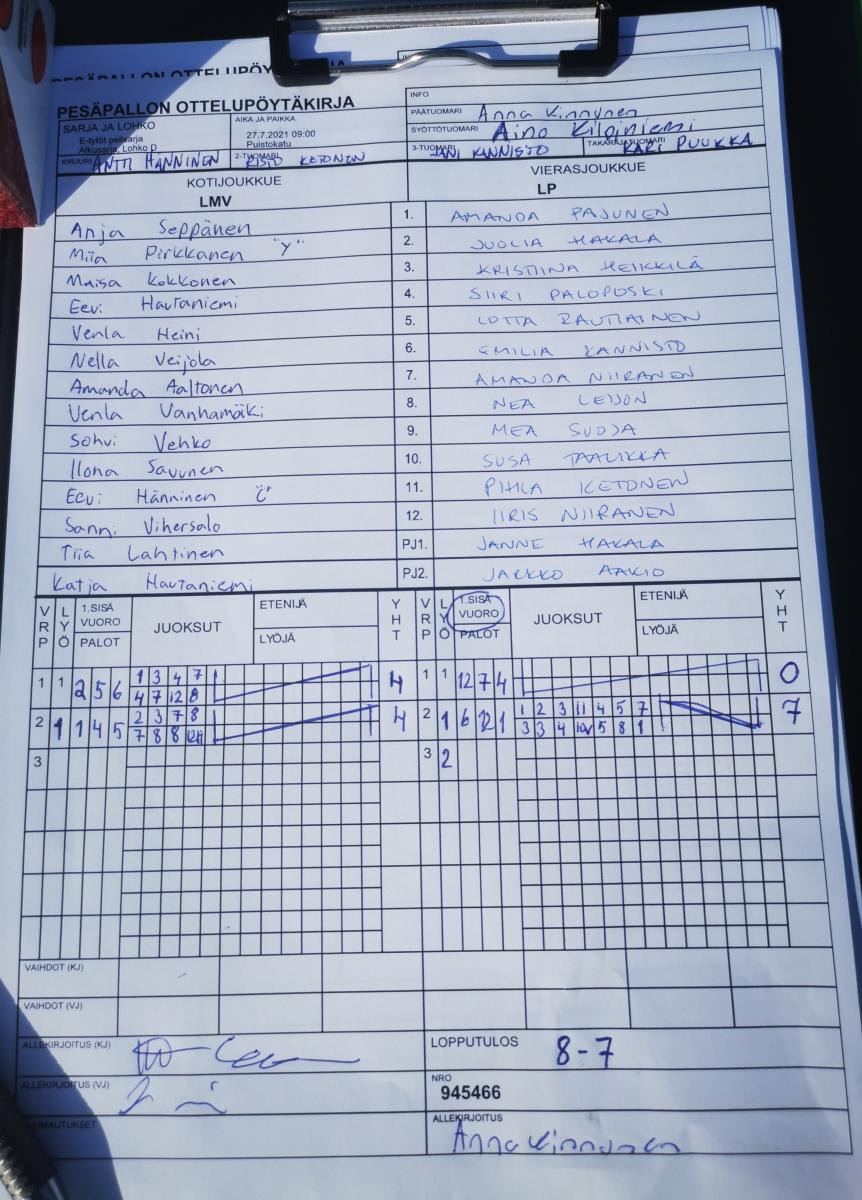 PESÄPALLON OTTELUPÖYTÄKIRJA
INFO
SARJA JA LOHKO
E-tytöt pelisarja
Alkusarja, Lohko D
AIKA JA PAIKKA
27.7.2021 09:00
Puistokatu
PÄÄTUOMARI Anna Kinnunen
SYÖTTÖTUOMARI Aino Kilpiniemi
KIRJURI ANTTI HÄNNINEN 2-TUOMARI RISTO KETONEN 3-TUOMARI JANI KANNISTO TAKARAJATUOMARI KARI PUUKKA
KOTIJOUKKUE VIERASJOUKKUE
LMV LP
Anja Seppänen 1. AMANDA PAJUNEN
Miia Pirkkanen "Y" 2. JUULIA HAKALA
Maisa Kokkonen 3. KRISTIINA HEIKKILÄ
Eevi Hautaniemi 4. SIIRI PALOPOSKI
Venla Heini 5. LOTTA RAUTIAINEN
Nella Veijola 6. EMILIA KANNISTO
Amanda Aaltonen 7. AMANDA NIIRANEN
Venla Vanhamäki 8. NEA LEIJON
Sohvi Vehko 9. MEA SUOJA
Ilona Savunen 10. SUSA TAALIKKA
Eevi Hänninen "C" 11. PIHLA KETONEN
Sanni Vihersalo 12. IIRIS NIIRANEN
Tiia Lahtinen PJ1. JANNE HAKALA
Katja Hautaniemi PJ2. JARKKO AAKIO
VRP LYÖ 1.SISÄ VUORO PALOT JUOKSUT ETENIJÄ LYÖJÄ YHT VRP LYÖ 1.SISÄ VUORO PALOT JUOKSUT ETENIJÄ LYÖJÄ YHT
1 1 2 5 6 1 3 4 7 4 1 1 12 7 4 0
4 7 12 8
2 1 1 4 5 2 3 7 8 4 2 1 6 12 1 1 2 3 11 4 5 7 7
7 8 8 3 3 4 10 5 8 1
3 3 2
VAIHDOT (KJ)
VAIHDOT (VJ)
ALLEKIRJOITUS (KJ) LOPPUTULOS 8-7
ALLEKIRJOITUS (VJ) NRO
945466
HUOMAUTUKSET ALLEKIRJOITUS
Anna Kinnunen